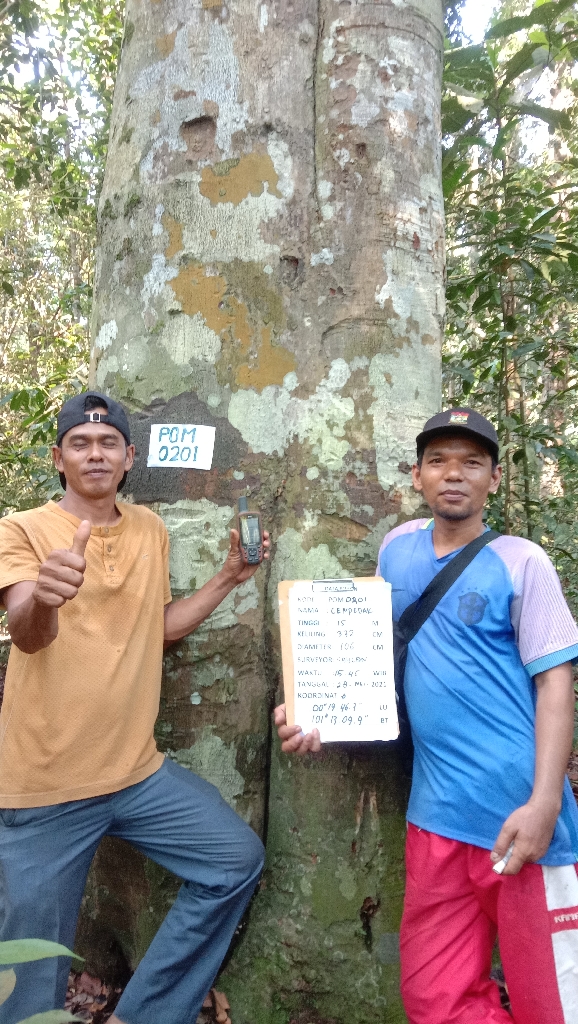 POM
0201
KODE : POM 0201
NAMA : CEMPEDAK
TINGGI : 15 M
KELILING : 332 CM
DIAMETER : 106 CM
SURVEYOR :
WAKTU : 15.45 WIB
TANGGAL : 28 - MEI - 2021
KOORDINAT :
00° 19' 46.7" LU
101° 13' 09.9" BT